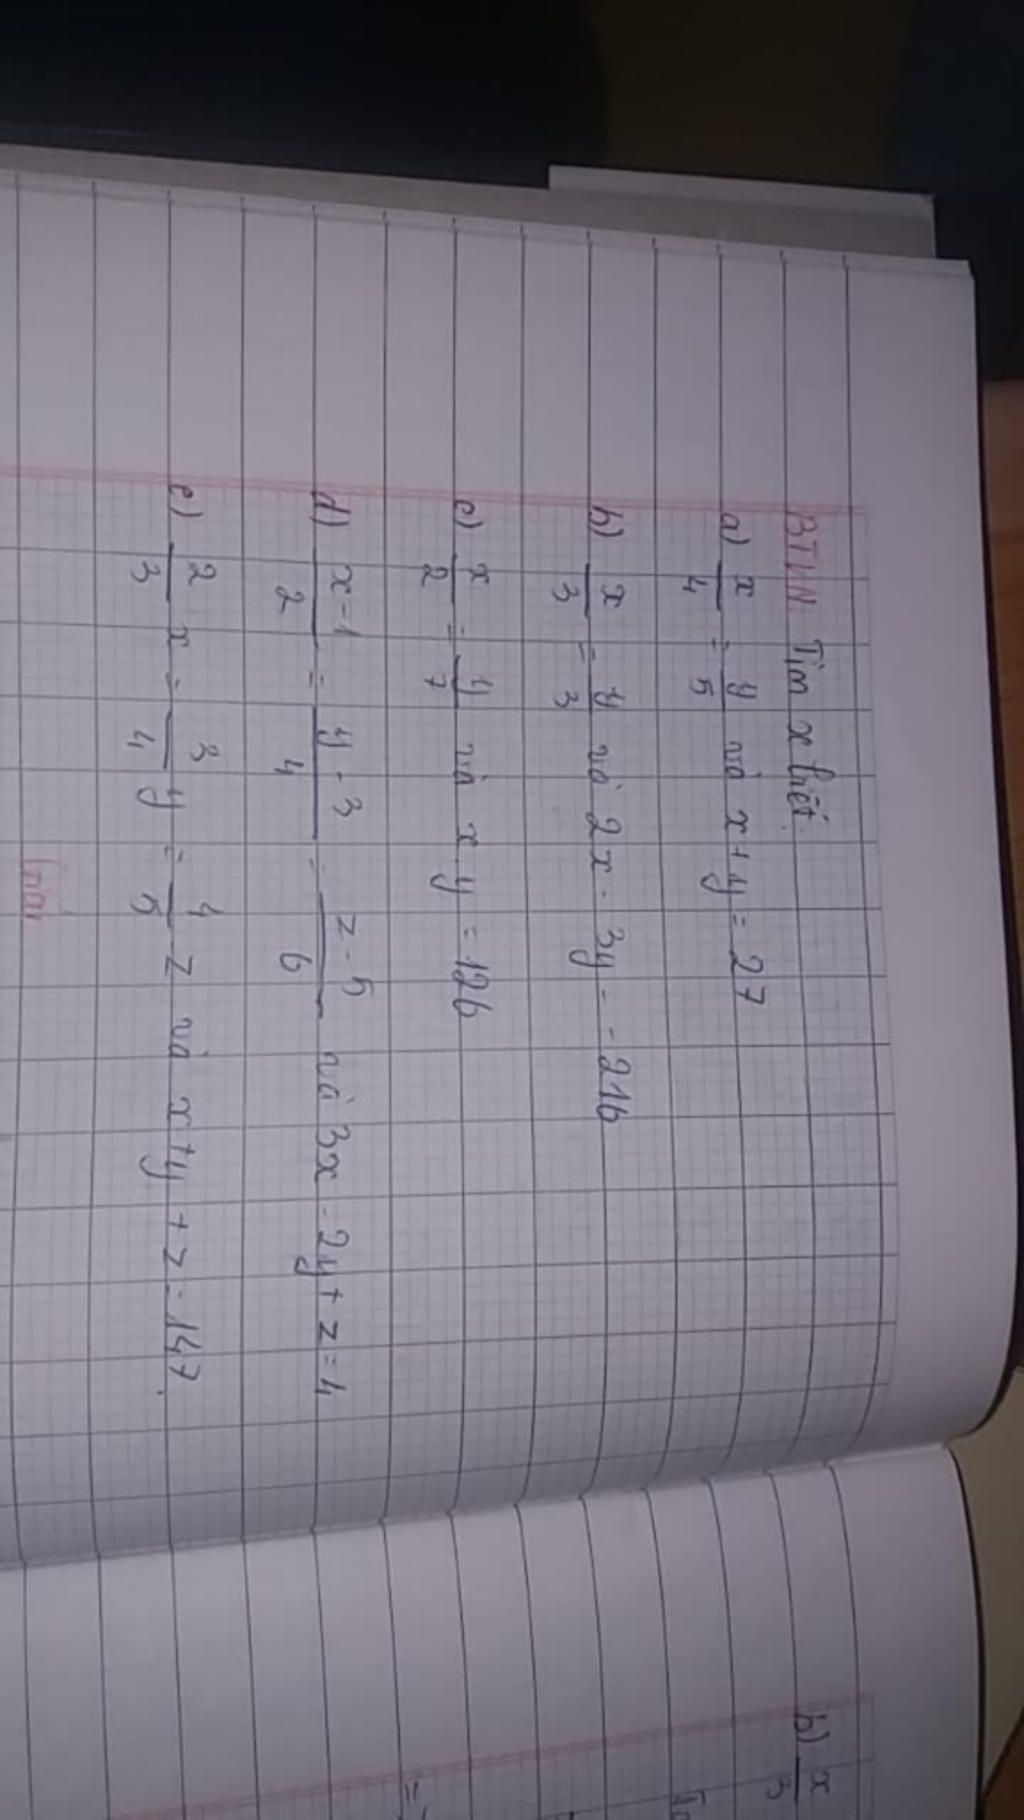 BTVN Tìm x biết.
a) x/4 = y/5 và x+y = 27
b) x/3 = y/3 và 2x - 3y = -216
c) x/2 = y/7 và xy = 126
d) x-1/2 = y-3/4 = z-5/6 và 3x - 2y + z = 4
e) 2/3 x = 3/4 y = 4/5 z và x+y+z = 147.
Giải
b) x/3
=